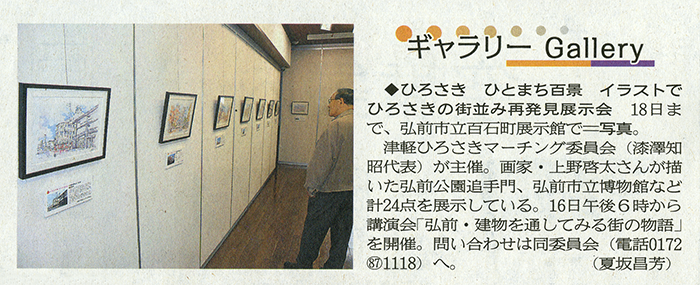 ギャラリー Gallery
◆ひろさき　ひとまち百景　イラストで
ひろさきの街並み再発見展示会　18日ま
で、弘前市立百石町展示館で＝写真。
　津軽ひろさきマーチング委員会（漆澤知
昭代表）が主催。画家・上野啓太さんが描
いた弘前公園追手門、弘前市立博物館など
計24点を展示している。16日午後６時から
講演会「弘前・建物を通してみる街の物語」
を開催。問い合わせは同委員会（電話0172
㊇1118）へ。　（夏坂昌芳）